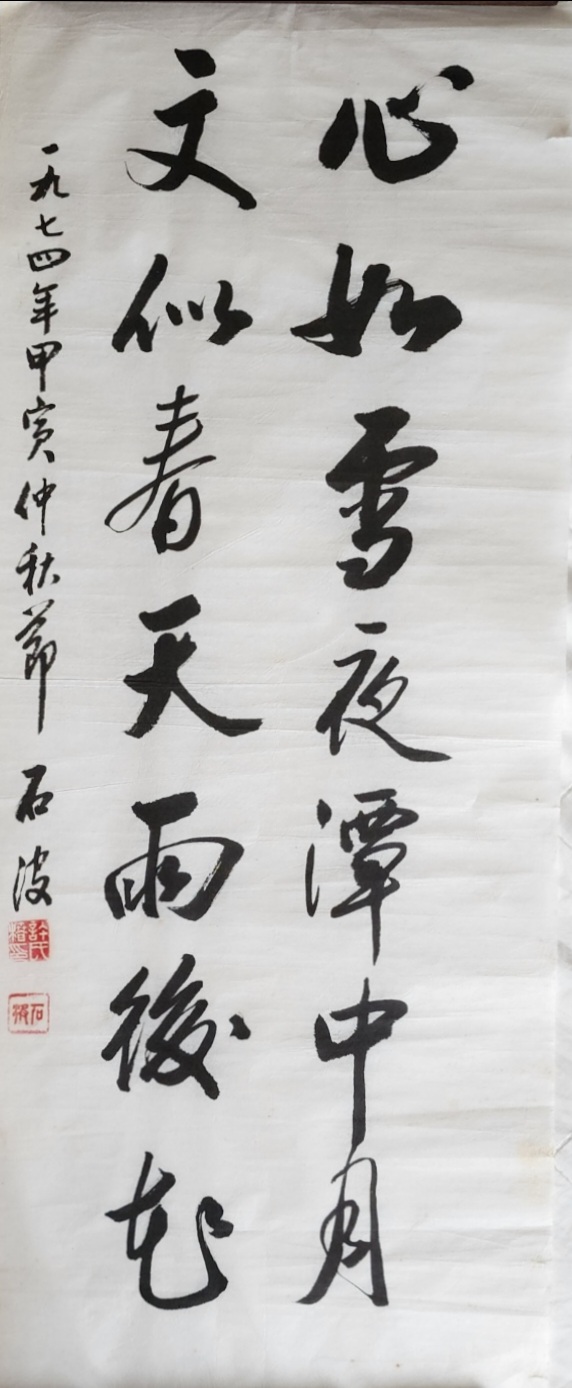 心如雪夜潭中月
文似春天雨後花
一九七四年甲寅仲秋節 石波
石波